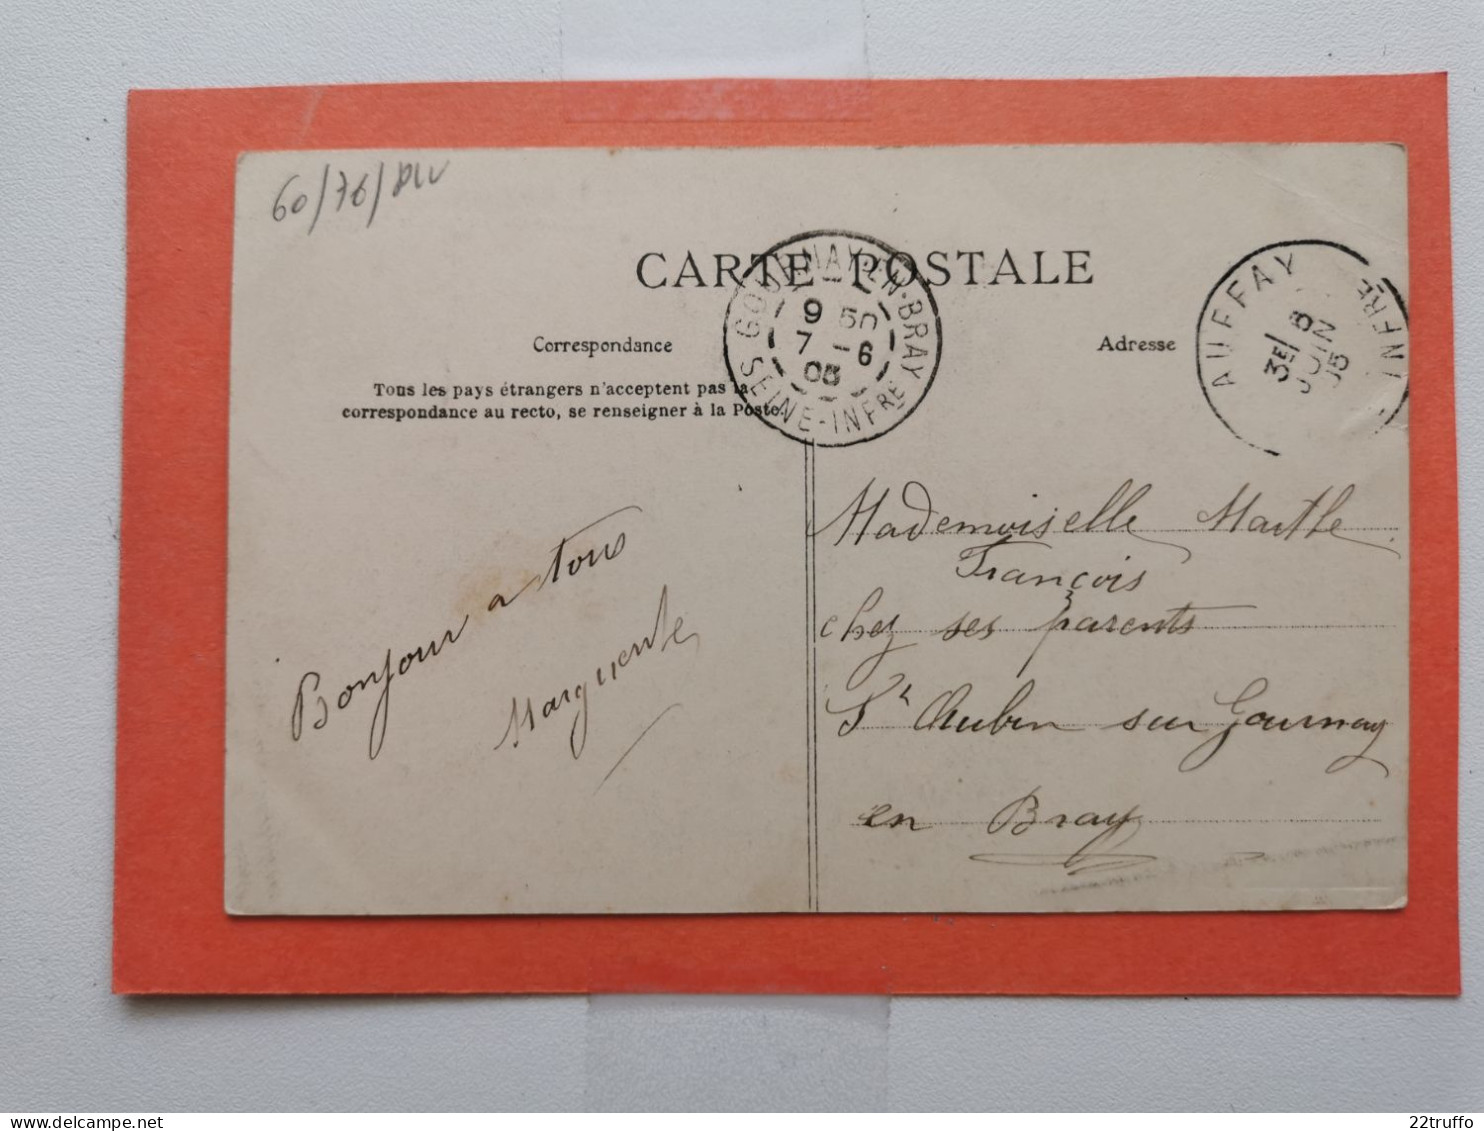 60/76/
CARTE POSTALE
GOURNAY-EN-BRAY
9 50
7 - 6
05
SEINE-INFRE
AUFFAY
3E 6
JUIN
05
INFRE
Correspondance
Adresse
Tous les pays étrangers n'acceptent pas la
correspondance au recto, se renseigner à la Poste.
Bonjour a tous
Marguerite
Mademoiselle Marthe
François
chez ses parents
St Aubin sur Gournay
en Bray
Delcampe.net
22truffo